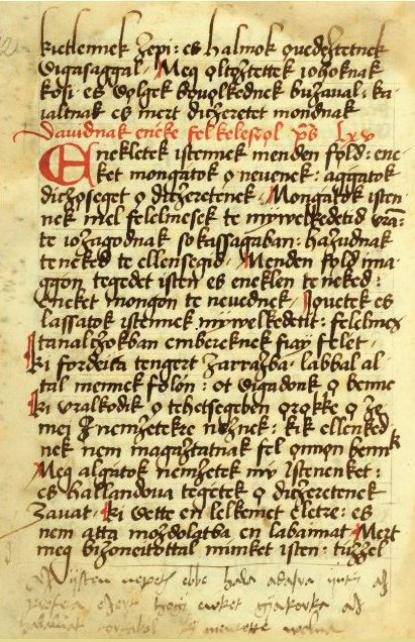 kietlennek zepi: es halmok ǫuedeztetnek
vigasaggal· Meg ǫltǫztettek iohoknak
kosi· es vǫlgek bǫuolkǫdnek buzaual: ka
ialtnak es mert diczeretet mondnak
Dauidnak eneke felkelesrǫl ps lxv
Enekletek istennek menden fǫld: ene
ket mongatok ǫ neuenek: aggatok
diczǫseget ǫ diczeretenek· Mongatok isten
nek mel felelmesek te mywelkedetid vra:
te iozagodnak sokassagaban: hazudnak
teneked te ellensegid· Menden fǫld ima
ggon tegedet isten es eneklen teneked:
eneket mongon te neuednek· Iǫuetek es
lassatok istennek mywelkedetit: felelmes
tanalczokban embereknek fiay felet·
ki fordeita tengert zarrazba· labbal al
tal mennek folon: ot vigadonk ǫ benne
ki vralkodik ǫ tehetsegeben ǫrǫkke ǫ ze
mei z nemzetekre neznek: kik ellenked
nek nem magaztatnak fel ǫnnǫn bennek
Meg algatok nemzetek my istenenket:
es hallandoua tegetek ǫ diczeretenek
zauat· ki vette en lelkemet eletre: es
nem atta mozdolatba en labaimat Mert
meg bizoneitottal minket isten: tuzzel
isten nepet ebbe hala adasra